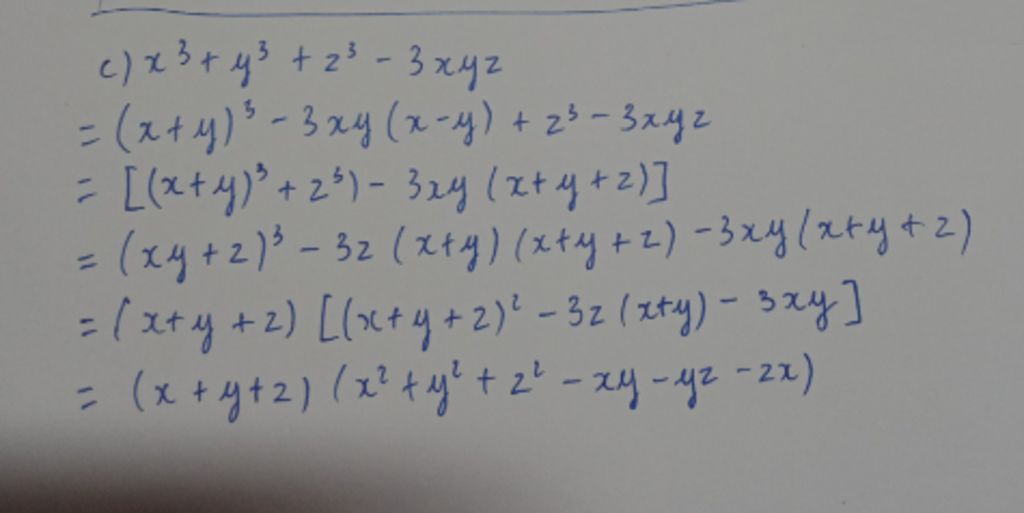 c) x³ + y³ + z³ - 3xyz
= (x+y)³ - 3xy (x-y) + z³ - 3xyz
= [(x+y)³ + z³) - 3xy (x+y+z)]
= (xy+z)³ - 3z (x+y) (x+y+z) - 3xy(x+y+z)
= (x+y+z) [(x+y+z)² - 3z(x+y) - 3xy]
= (x+y+z) (x²+y²+z² - xy - yz - zx)